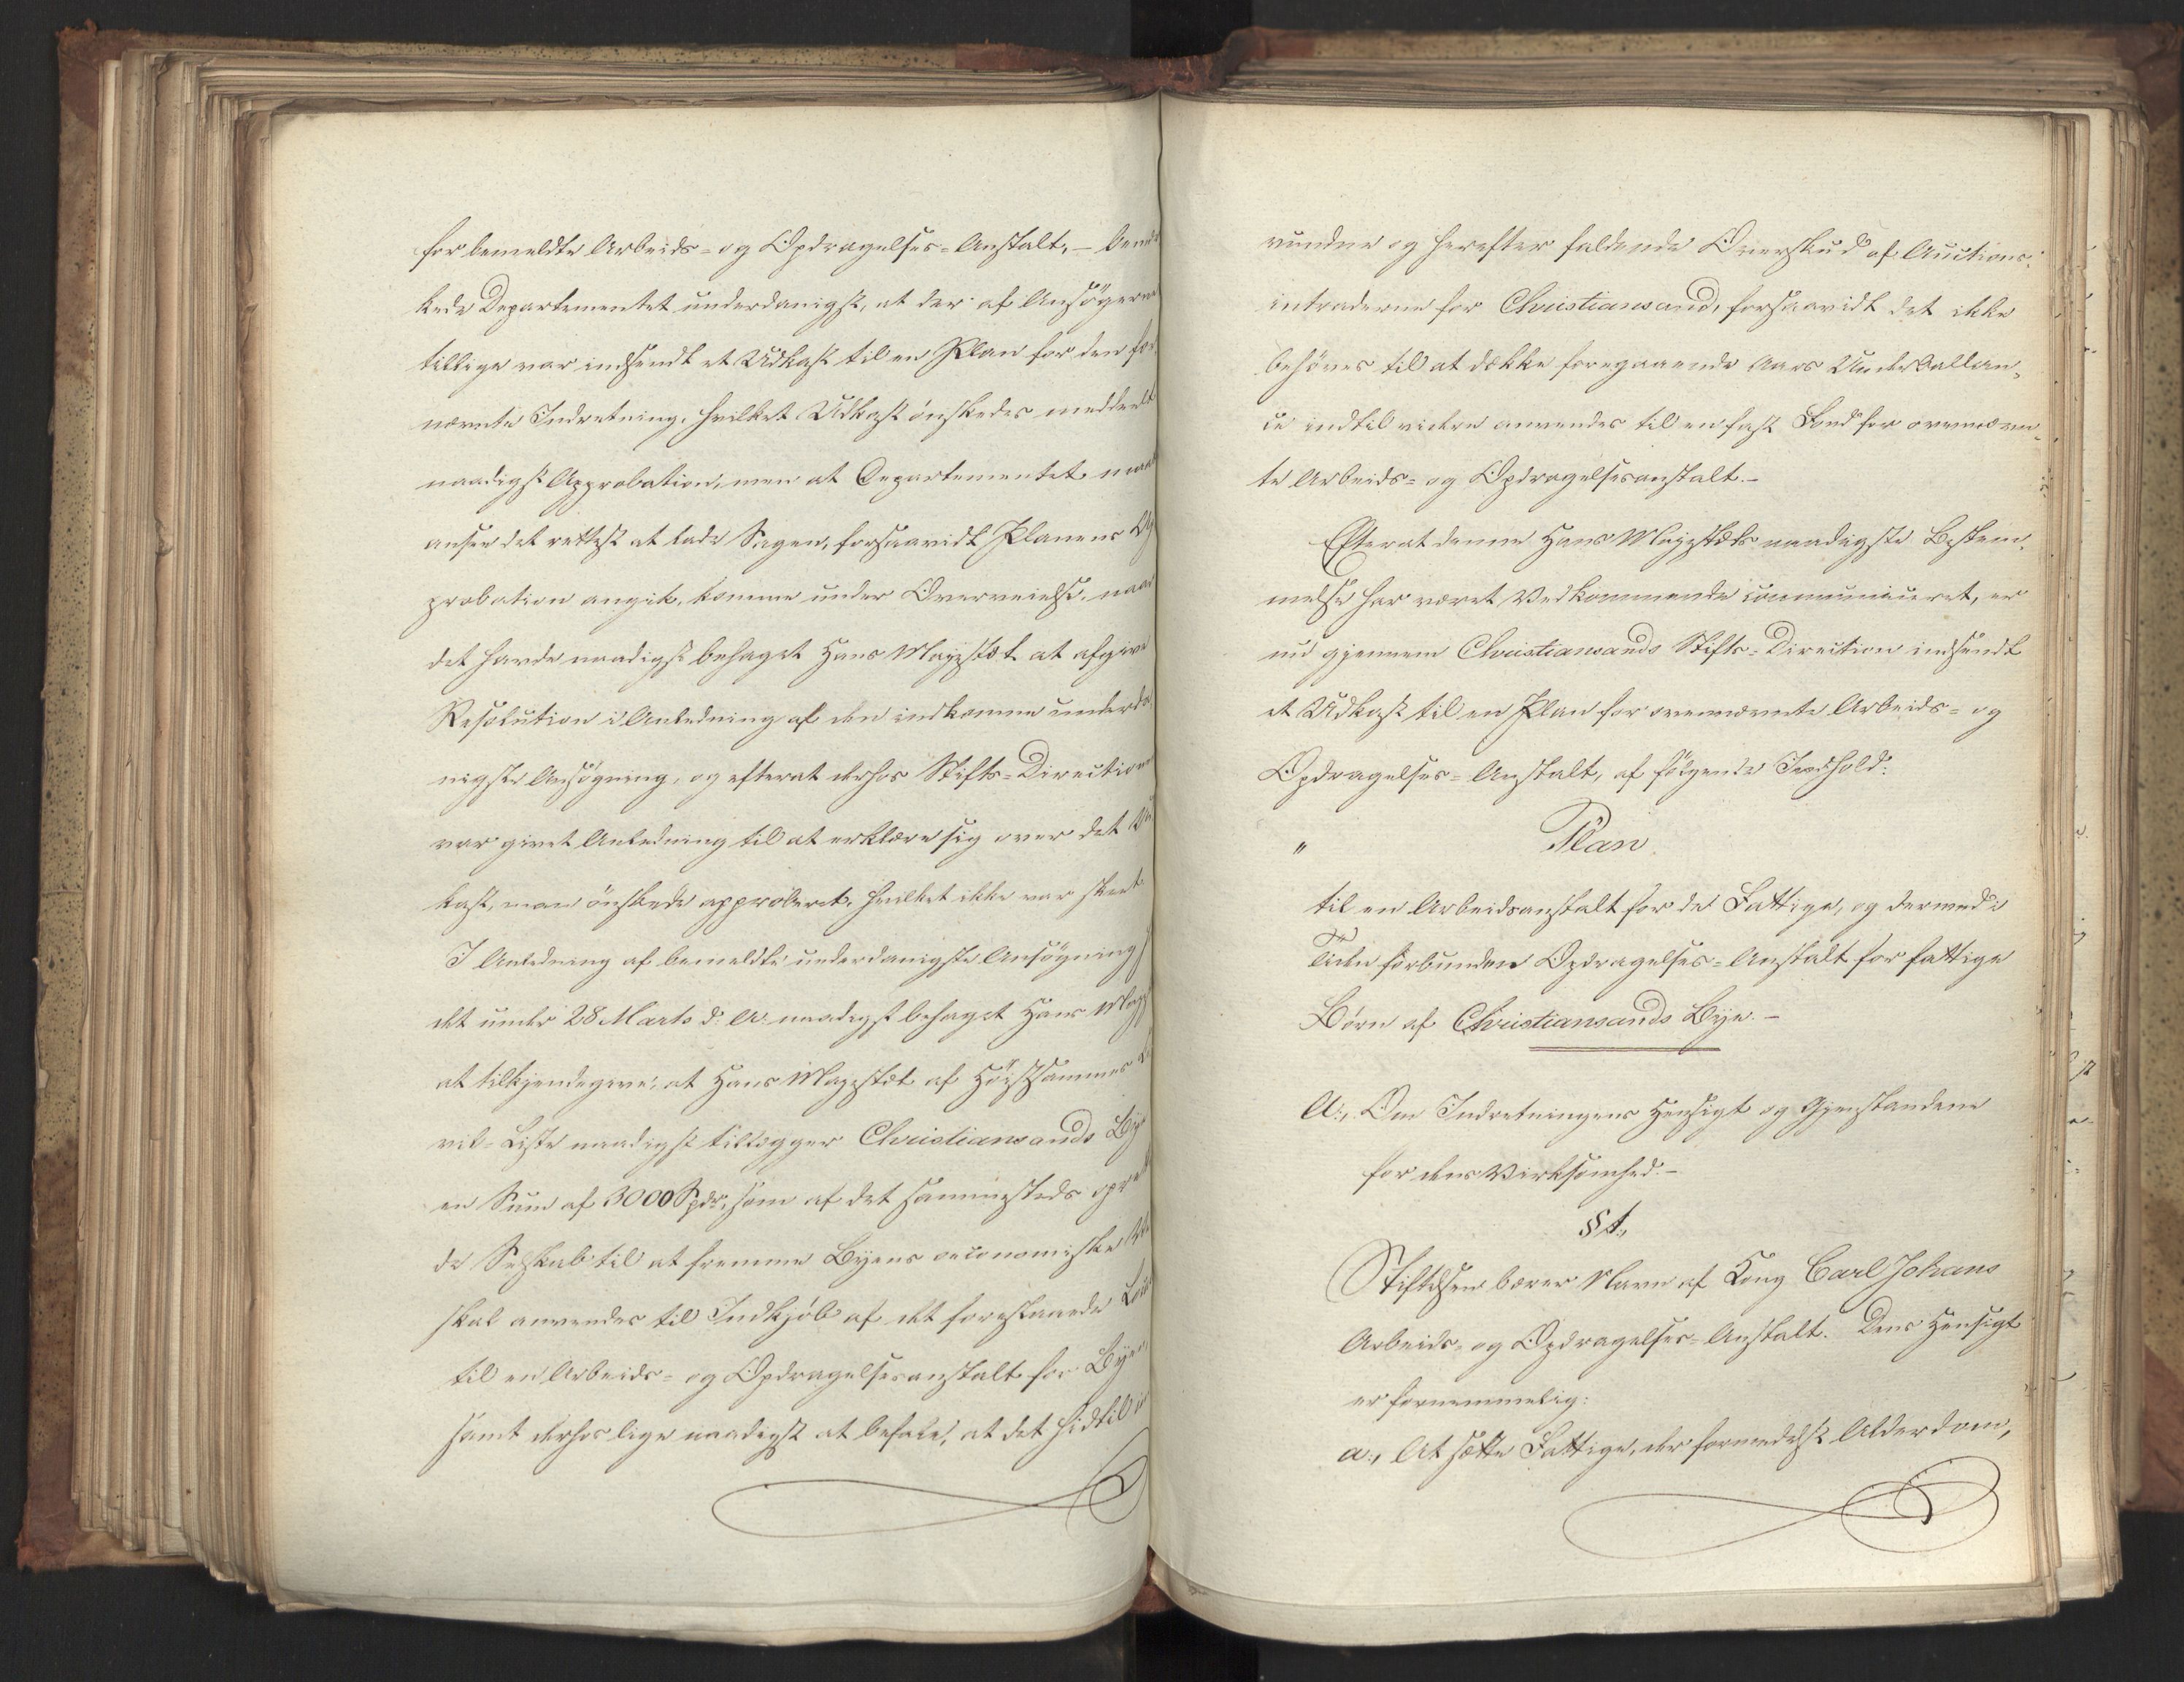 for bemeldte Arbeids- og Opdragelses-Anstalt, –
kede Departementet underdanigst, at der af Ansögerne
tillige var indsendt et Udkast til en Plan for den for
nævnte Indretning, hvilket Udkast önskedes meddeelt
naadigst Approbation, men at Departementet maa
ansee det rettest at lade Sagen, forsaavidt Planens Ap
probation angik, komme under Overveielse, naar
det havde naadigst behaget Hans Majestæt at afgive
Resolution i Anledning af den indkomne underda
nigste Ansögning, og efterat derhos Stifts-Directionen
var givet Anledning til at erklære sig over det Ud
kast, man önskede approberet, hvilket ikke var skeet
I Anledning af bemeldte underdanigste Ansögning
det under 28 Marts d: A: naadigst behaget Hans Maj
at tilkjendegive, at Hans Majestæt af Höistsammes
vil-Liste naadigst tillægger Christiansands By
en Sum af 3000 Spdr, som af det sammesteds opret
de Selskab til at fremme Byens oeconomiske
skal anvendes til Indkjöb af det foreslaaede
til en Arbeids- og Opdragelsesanstalt for Byen
samt derhos lige naadigst at befale, at det hidtil
vundne og herefter faldende Overskud af Auctions-
intraderne for Christiansand, forsaavidt det ikke
behöves til at dække foregaaende Aars Underballan-
ce indtil videre anvendes til en fast Fond for ovennævn-
te Arbeids- og Opdragelsesanstalt.–
Efterat denne Hans Majestæts naadigste Bestem-
melse har været Vedkommende communiceret, er
nu gjennem Christiansands Stifts-Direction indsendt
et Udkast til en Plan for ovennævnte Arbeids- og
Opdragelses-Anstalt, af fölgende Indhold:
" Plan
til en Arbeidsanstalt for de Fattige, og dermed i
Tiden forbunden Opdragelses-Anstalt for fattige
Börn af Christiansands Bye.–
A., Om Indretningens Hensigt og Gjenstandene
for dens Virksomhed.–
§ 1.,
Stiftelsen bærer Navn af Kong Carl Johans
Arbeids- og Opdragelses-Anstalt. Dens Hensigt
er fornemmelig:
a., At sætte Fattige, der formedelst Alderdom,